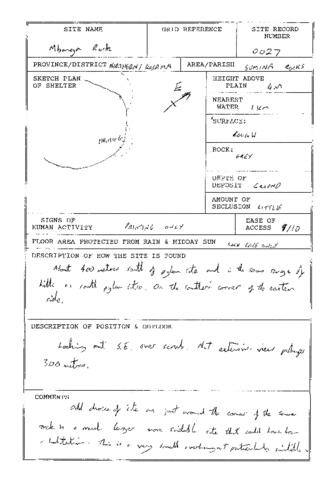 SITE NAME
GRID REFERENCE
SITE RECORD NUMBER
Rock
0027
PROVINCE/DISTRICT NORTHERN /
AREA/PARISH ROCKS
SKETCH PLAN OF SHELTER
E
HEIGHT ABOVE PLAIN 4m
NEAREST WATER 1 km
SURFACE:
ROUGH
ROCK:
GREY
DEPTH OF DEPOSIT GROUND
AMOUNT OF SECLUSION LITTLE
SIGNS OF HUMAN ACTIVITY PAINTING ONLY
EASE OF ACCESS 9/10
FLOOR AREA PROTECTED FROM RAIN & MIDDAY SUN ROCK FACE ONLY
DESCRIPTION OF HOW THE SITE IS FOUND
About 400 metres south of pylon site and in the same range of
hills as south pylon site. On the southern corner of the eastern
side.
DESCRIPTION OF POSITION & OUTLOOK
Looking out S.E. over scrub. Not extensive view perhaps
300 metres.
COMMENTS
Odd choice of site as just around the corner of the same
rock is a much larger more suitable site that could have been
habitation. This is a very small overhang not particularly suitable.